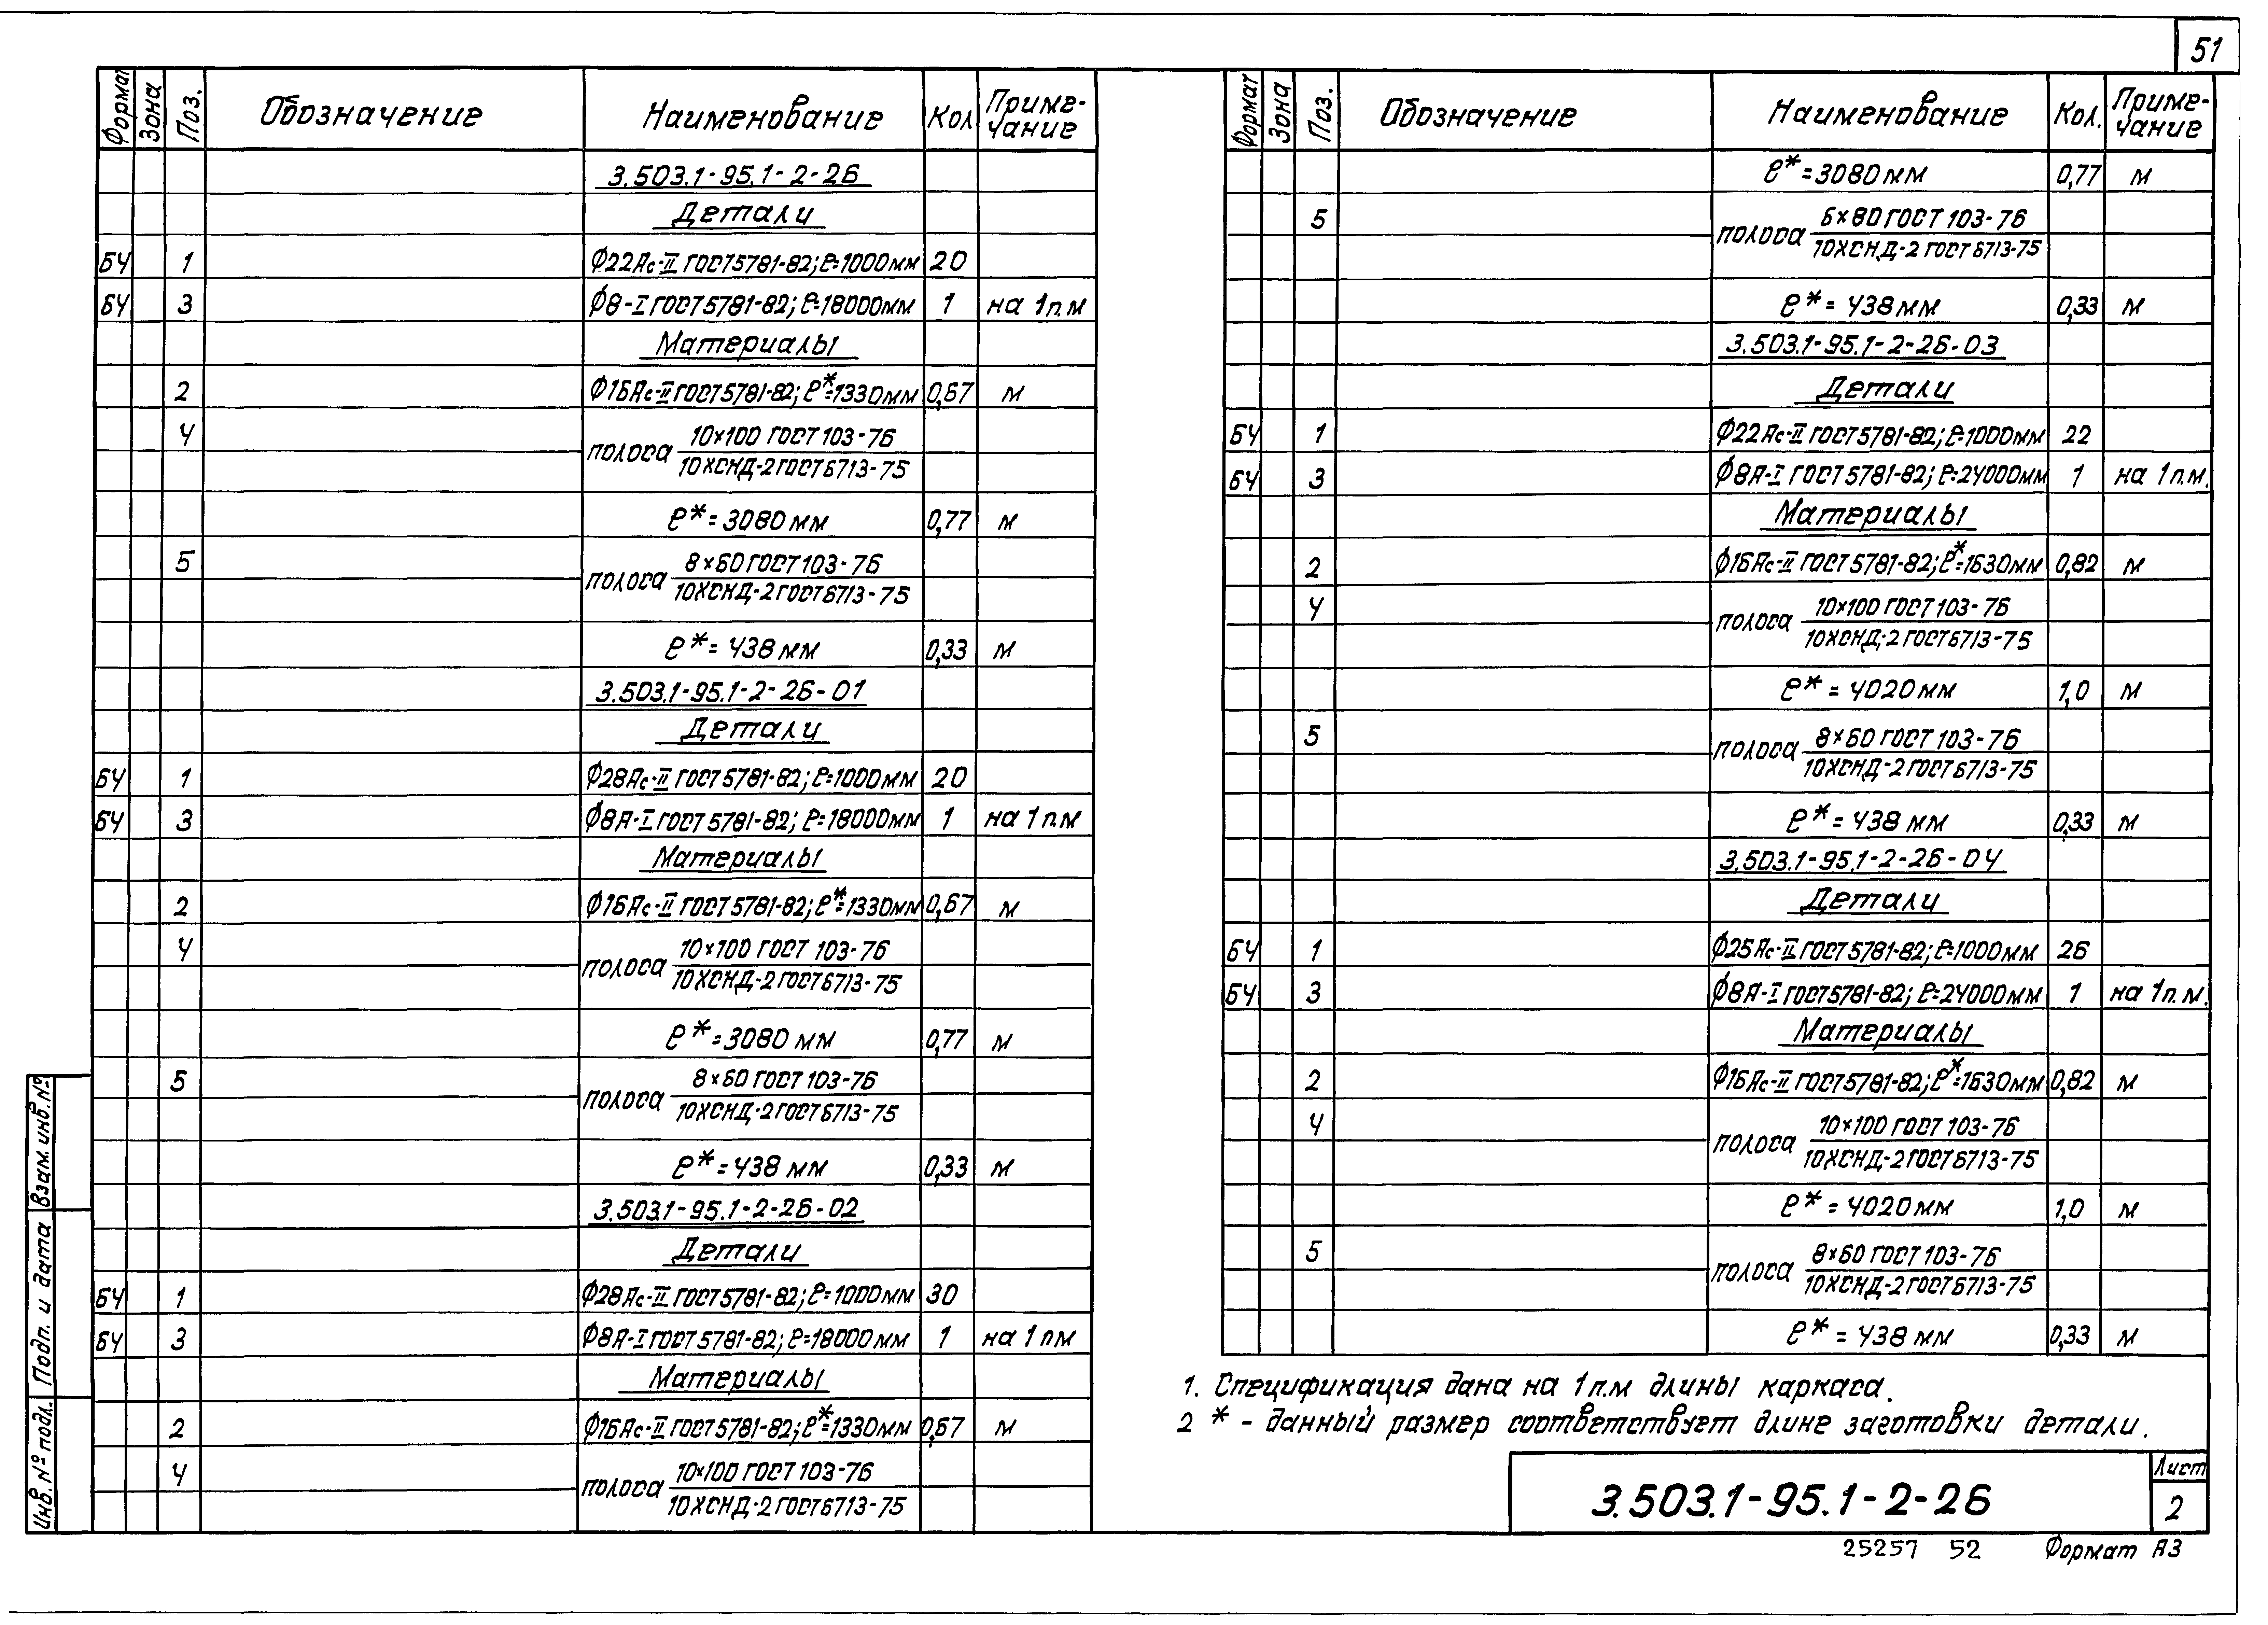 51
Формат Зона Поз. Обозначение Наименование Кол Приме-
чание
3.503.1-95.1-2-26
Детали
БЧ 1 Ф22Ас-II ГОСТ5781-82; ℓ=1000мм 20
БЧ 3 Ф8-I ГОСТ5781-82; ℓ=18000мм 1 на 1п.м
Материалы
2 Ф16Ас-II ГОСТ5781-82; ℓ*=1330мм 0,67 м
4 полоса 10×100 ГОСТ 103-76
10ХСНД-2 ГОСТ6713-75
ℓ*=3080мм 0,77 м
5 полоса 8×60 ГОСТ103-76
10ХСНД-2 ГОСТ6713-75
ℓ*=438мм 0,33 м
3.503.1-95.1-2-26-01
Детали
БЧ 1 Ф28Ас-II ГОСТ5781-82; ℓ=1000мм 20
БЧ 3 Ф8А-I ГОСТ5781-82; ℓ=18000мм 1 на 1п.м
Материалы
2 Ф16Ас-II ГОСТ5781-82; ℓ*=1330мм 0,67 м
4 полоса 10×100 ГОСТ 103-76
10ХСНД-2 ГОСТ6713-75
ℓ*=3080 мм 0,77 м
5 полоса 8×60 ГОСТ 103-76
10ХСНД-2 ГОСТ6713-75
ℓ*=438 мм 0,33 м
3.503.1-95.1-2-26-02
Детали
БЧ 1 Ф28Ас-II ГОСТ5781-82; ℓ=1000мм 30
БЧ 3 Ф8А-I ГОСТ5781-82; ℓ=18000мм 1 на 1 пм
Материалы
2 Ф16Ас-II ГОСТ5781-82; ℓ*=1330мм 0,67 м
4 полоса 10×100 ГОСТ 103-76
10ХСНД-2 ГОСТ6713-75
Формат Зона Поз. Обозначение Наименование Кол. Приме-
чание
ℓ*=3080мм 0,77 м
5 полоса 6×80 ГОСТ 103-76
10ХСНД-2 ГОСТ6713-75
ℓ*=438мм 0,33 м
3.503.1-95.1-2-26-03
Детали
БЧ 1 Ф22Ас-II ГОСТ5781-82; ℓ=1000мм 22
БЧ 3 Ф8А-I ГОСТ5781-82; ℓ=24000мм 1 на 1п.м.
Материалы
2 Ф16Ас-II ГОСТ5781-82; ℓ*=1630мм 0,82 м
4 полоса 10×100 ГОСТ 103-76
10ХСНД-2 ГОСТ6713-75
ℓ*=4020мм 1,0 м
5 полоса 8×60 ГОСТ 103-76
10ХСНД-2 ГОСТ6713-75
ℓ*=438 мм 0,33 м
3.503.1-95.1-2-26-04
Детали
БЧ 1 Ф25Ас-II ГОСТ5781-82; ℓ=1000мм 26
БЧ 3 Ф8А-I ГОСТ5781-82; ℓ=24000мм 1 на 1п.м.
Материалы
2 Ф16Ас-II ГОСТ5781-82; ℓ*=1630мм 0,82 м
4 полоса 10×100 ГОСТ 103-76
10ХСНД-2 ГОСТ6713-75
ℓ*=4020мм 1,0 м
5 полоса 8×60 ГОСТ 103-76
10ХСНД-2 ГОСТ6713-75
ℓ*=438 мм 0,33 м
1. Спецификация дана на 1п.м длины каркаса.
2 * - данный размер соответствует длине заготовки детали.
3.503.1-95.1-2-26
Лист
2
25257 52 Формат А3
Взам. инв. №
Подп. и дата
Инв. № подл.